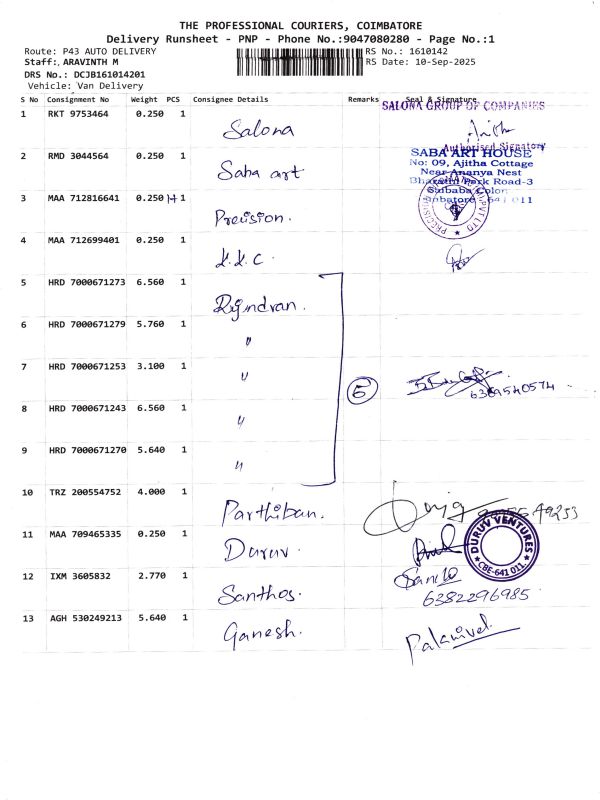 THE PROFESSIONAL COURIERS, COIMBATORE
Delivery Runsheet - PNP - Phone No.:9047080280 - Page No.:1
Route: P43 AUTO DELIVERY RS No.: 1610142
Staff: ARAVINTH M RS Date: 10-Sep-2025
DRS No.: DCJB161014201
Vehicle: Van Delivery
S No Consignment No Weight PCS Consignee Details Remarks Seal & Signature
SALONA GROUP OF COMPANIES
1 RKT 9753464 0.250 1 Salona
Authorised Signatory
2 RMD 3044564 0.250 1 Saba art
SABA ART HOUSE
No: 09, Ajitha Cottage
Near Ananya Nest
Bharathi Park Road-3
Saibaba Colony
Coimbatore - 641 011
3 MAA 712816641 0.250 1 Precision.
4 MAA 712699401 0.250 1 K.K.C.
5 HRD 7000671273 6.560 1 Rajindran.
6 HRD 7000671279 5.760 1 "
7 HRD 7000671253 3.100 1 "
5
6369540574
8 HRD 7000671243 6.560 1 "
9 HRD 7000671270 5.640 1 "
10 TRZ 200554752 4.000 1 Parthiban.
11 MAA 709465335 0.250 1 Duruv.
DURUV VENTURES
CBE-641 011.
12 IXM 3605832 2.770 1 Santhos.
6382296985
13 AGH 530249213 5.640 1 Ganesh.
Palanivel.